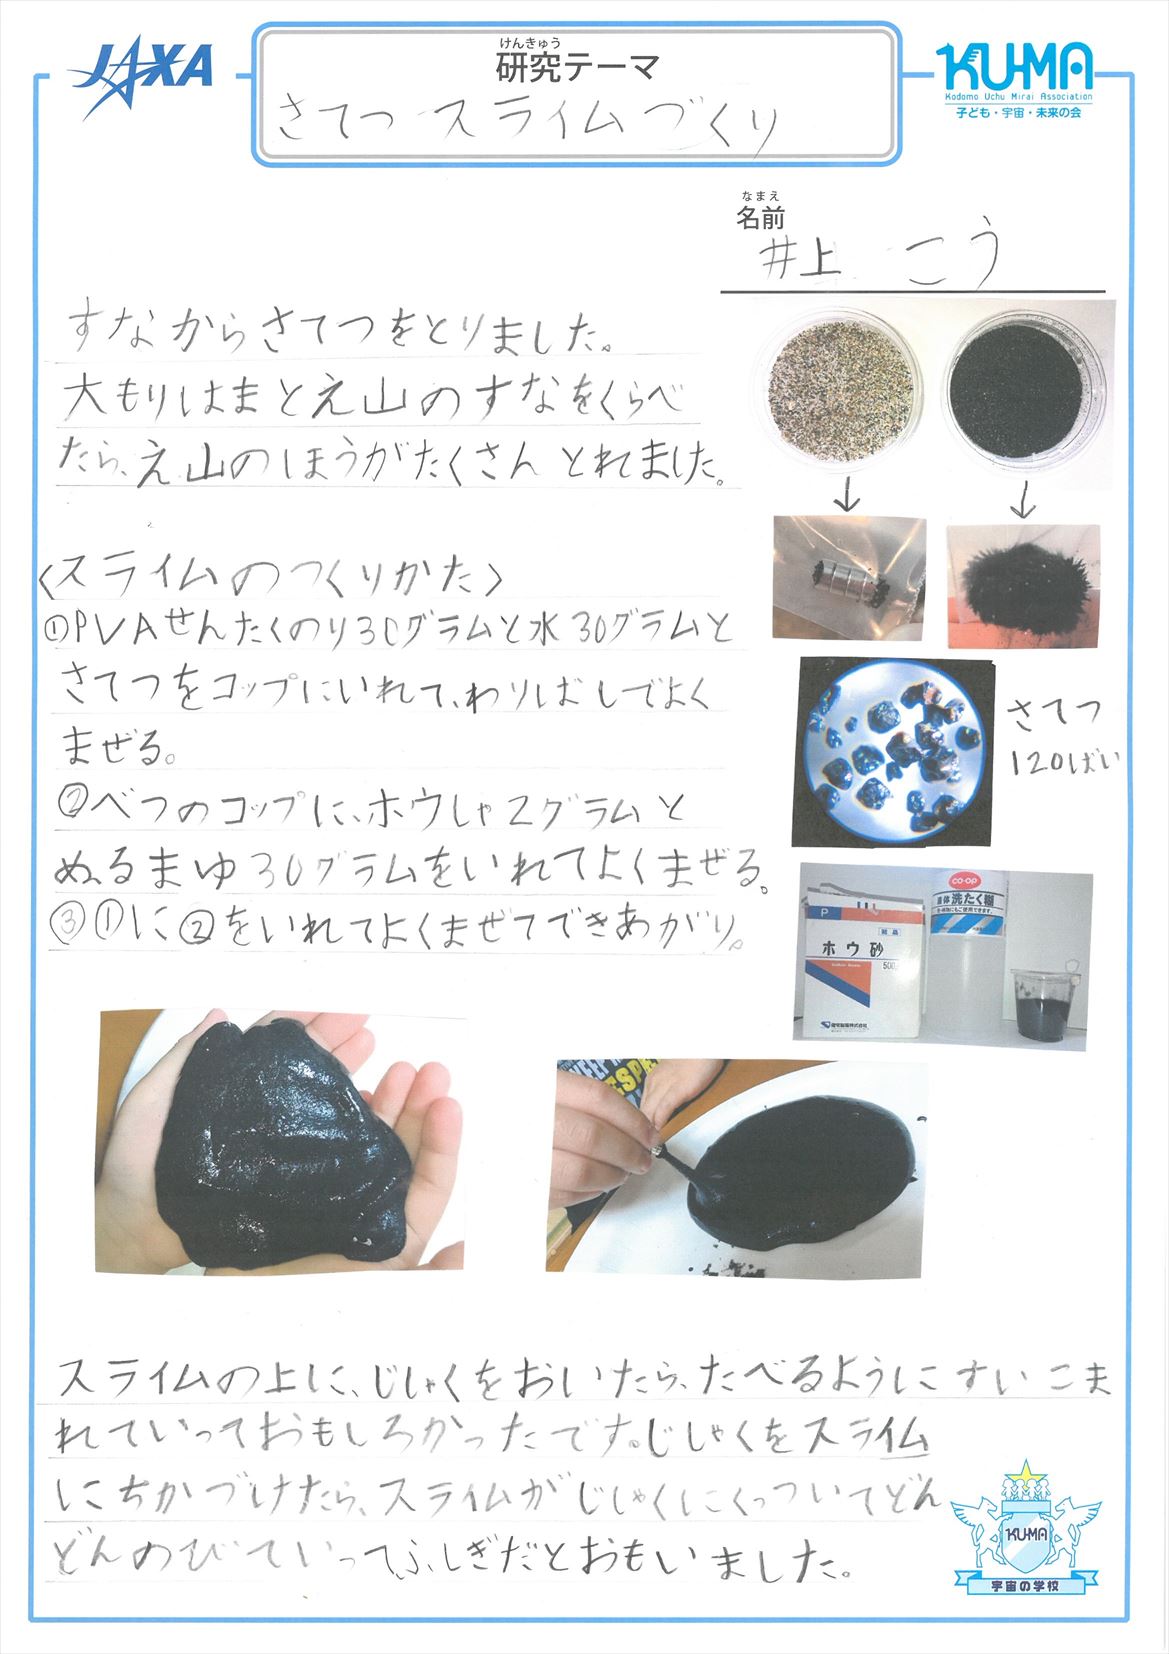 JAXA
けんきゅう
研究テーマ
さてつスライムづくり
KU-MA
Kodomo Uchu Mirai Association
子ども・宇宙・未来の会
なまえ
名前
井上 こう
すなからさてつをとりました。
大もりはまとえ山のすなをくらべ
たら、え山のほうがたくさんとれました。
〈スライムのつくりかた〉
①PVAせんたくのり30グラムと水30グラムと
さてつをコップにいれて、わりばしでよく
まぜる。
②べつのコップに、ホウしゃ2グラムと
ぬるまゆ30グラムをいれてよくまぜる。
③①に②をいれてよくまぜてできあがり。
さてつ
120ばい
P
ホウ砂
500
co-op
液体洗たく糊
スライムの上に、じしゃくをおいたら、たべるようにすいこま
れていっておもしろかったです。じしゃくをスライム
にちかづけたら、スライムがじしゃくにくっついてどん
どんのびていってふしぎだとおもいました。
KU-MA
宇宙の学校